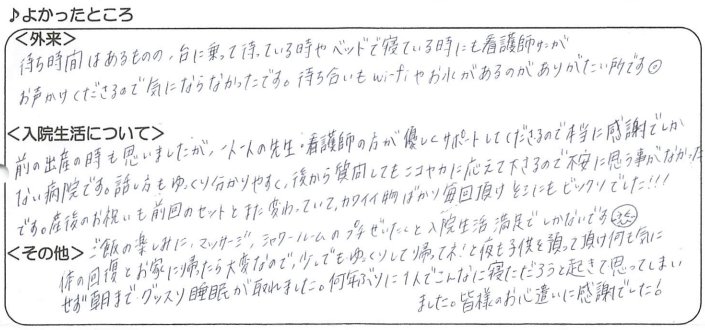 ♪よかったところ
<外来>
待ち時間はあるものの、台に乗って待っている時やベッドで寝ている時にも看護師サンが
お声かけくださるので気にならなかったです。待ち合いもwi-fiやお水があるのがありがたい所です☺
<入院生活について>
前の出産の時も思いましたが、一人一人の先生・看護師の方が優しくサポートしてくださるので本当に感謝でしか
ない病院です。話し方もゆっくり分かりやすく、後から質問してもニコヤかに応えて下さるので不安に思う事がなかった
です。産後のお祝いも前回のセットとまた変わっていて、カワイイ物ばかり毎回頂けとこにもビックリでした!!!
ご飯の楽しみに、マッサージ、シャワールームのプチぜいたくと入院生活満足でしかないです
<その他>
体の回復とお家に帰ったら大変なので、少しでもゆっくりして帰ってネ!と夜も子供を預って頂け何も気に
せず朝までグッスリ睡眠が取れました。何年ぶりに1人でこんなに寝ただろうと起きて思ってしまい
ました。皆様のお心遣いに感謝でした!